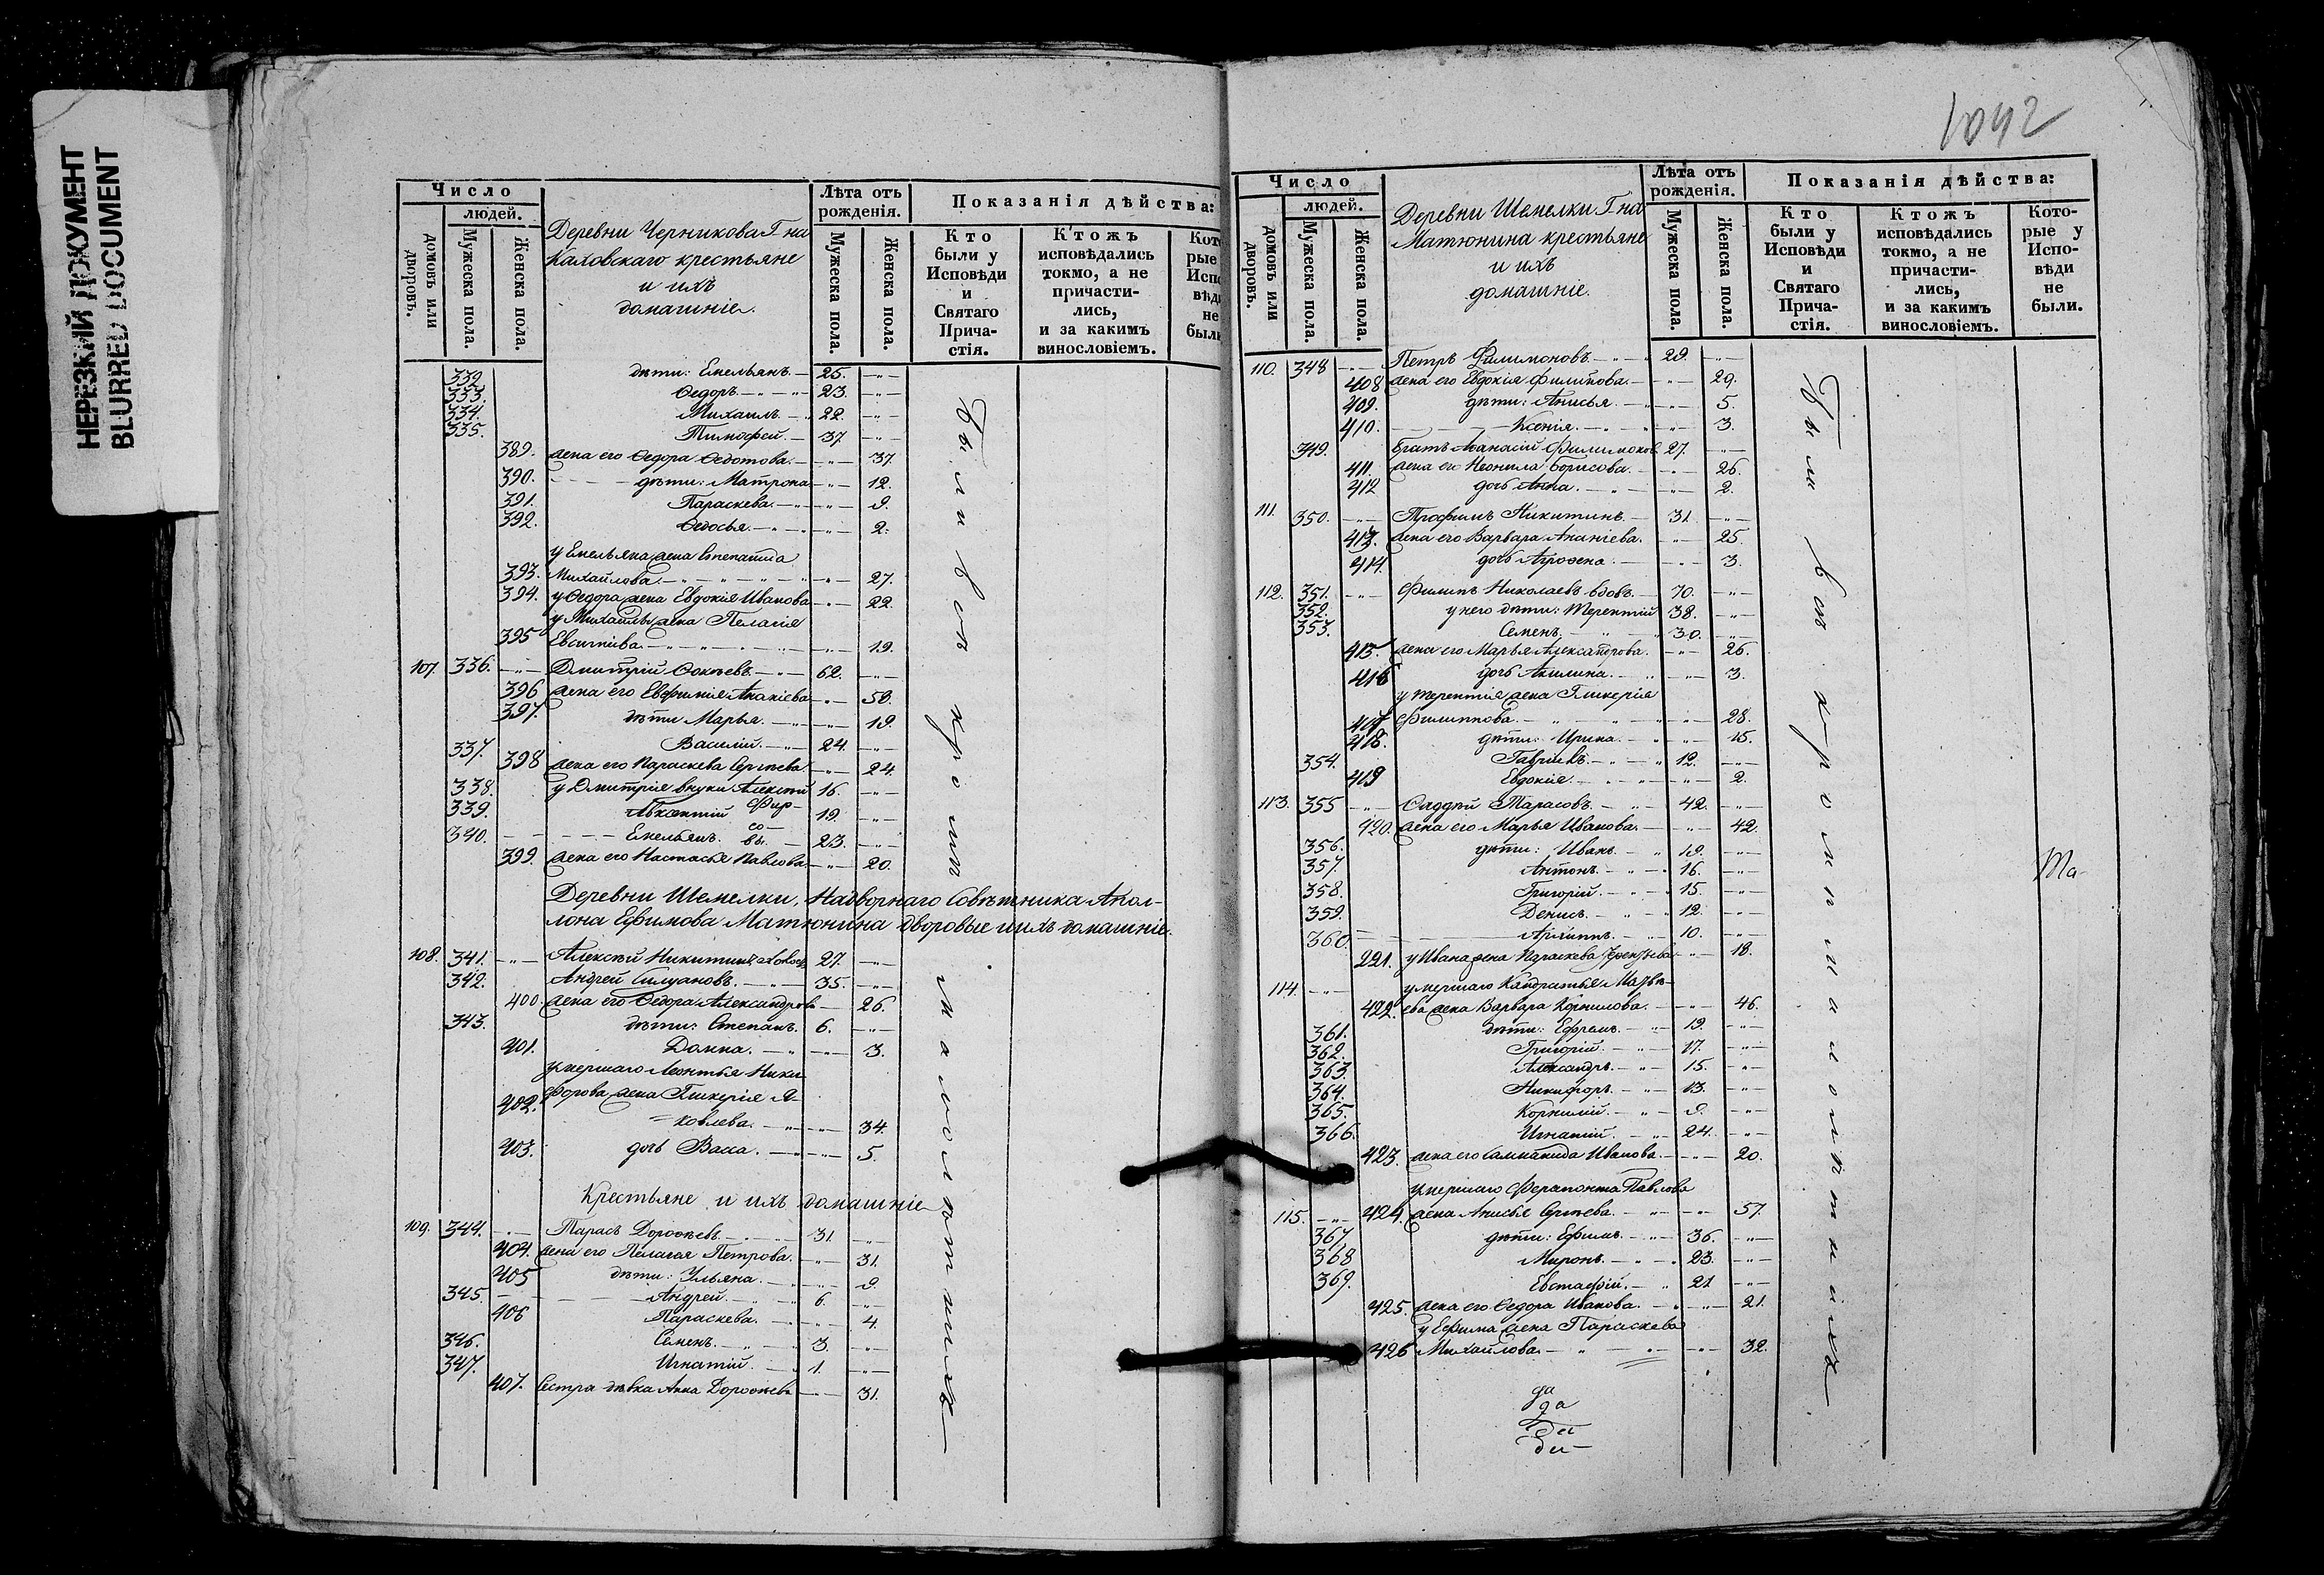 НЕРЕЗКИЙ ДОКУМЕНТ
BLURRED DOCUMENT
Число
людей.
домовъ или дворовъ.
Мужеска пола.
Женска пола.
Деревни Черникова Г-на
Каховскаго крестьяне
и ихъ
домашніе.
Лѣта отъ рожденія.
Мужеска пола.
Женска пола.
Показанія дѣйства:
Кто были у Исповѣди и Святаго Прича-стія.
Ктожъ исповѣдались токмо, а не причасти-лись, и за какимъ винословіемъ.
332 дѣти: Емельянъ 25.
333. Ѳедоръ 23.
334. Михаилъ 22.
335. Тимофей 37.
389. жена его Ѳедора Ѳедотова 37.
390. дѣти: Матрона 12.
391. Параскева 9.
392. Ѳедосья 2.
у Емельяна жена Степанида
393. Михайлова 27.
394. у Ѳедора жена Евдокія Иванова 22.
у Михайлы жена Пелагія
395 Евсигнѣева 19.
107. 336. Дмитрій Фокѣевъ 62.
396 жена его Евфимія Ананіева 50.
397. дѣти Марья 19.
337. Василій 24.
398 жена его Параскева Сергѣева 24.
338. у Дмитрія внуки Алексѣй 16.
339. Авксентій Фир- 19.
340. Емельянъ со-въ 23.
399. жена его Настасья Павлова 20.
Деревни Шемелки, Надворнаго Совѣтника Апол-
лона Ефимова Матюнина дворовые и ихъ домашніе.
108. 341. Алексѣй Никитинъ 27.
342. Андрей Силуановъ 35.
400. жена его Ѳедора Александрова 26.
343. дѣти: Степанъ 6.
401. Домна 3.
умершаго Леонтья Ники-
402. форова жена Гликерія Я-
ковлева 34.
403. дочь Васса 5.
Крестьяне и ихъ домашніе
109. 344. Тарасъ Дороѳѣевъ 31
404. жена его Пелагея Петрова 31.
405 дѣти: Ульяна 9.
345. Андрей 6.
406 Параскева 4.
346. Семенъ 3.
347. Игнатій 1.
407. Сестра дѣвка Анна Дороѳѣева 31.
Были вси крommѣ малолѣтныхъ
1042
Число
людей.
домовъ или дворовъ.
Мужеска пола.
Женска пола.
Деревни Шемелки Г-на
Матюнина крестьяне
и ихъ
домашніе.
Лѣта отъ рожденія.
Мужеска пола.
Женска пола.
Показанія дѣйства:
Кто были у Исповѣди и Святаго Прича-стія.
Ктожъ исповѣдались токмо, а не причасти-лись, и за какимъ винословіемъ.
Кото-рые у Испо-вѣди не были.
110. 348 Петръ Филимоновъ 29.
408 жена его Евдокія Филипова 29.
409. дѣти: Анисья 5.
410. Ксенія 3.
349. братъ Афанасій Филимонов 27.
411. жена его Неонила Борисова 26.
412 дочь Анна 2.
111. 350. Трофимъ Никитинъ 31
413. жена его Варвара Ананіева 25.
414. дочь Агрофена 3.
112. 351. Филипъ Николаевъ вдовъ 70.
352. у него дѣти: Терентій 38.
353. Семенъ 30.
415. жена его Марья Александрова 26.
416 дочь Акилина 3.
у Терентія жена Гликерія
417 Филиппова 28.
418. дѣти: Ирина 15.
354. Гавріилъ 12.
419 Евдокія 2.
113. 355 Фаддѣй Тарасовъ 42.
420. жена его Марья Иванова 42.
356. дѣти: Иванъ 19.
357. Антонъ 16.
358. Григорій 15.
359. Денисъ 12.
360. Архиппъ 10.
221. у Ивана жена Параскева 18.
114. умершаго Кондратья Матвѣ-
422. ева жена Варвара Корнилова 46.
361. дѣти: Ефремъ 19.
362. Григорій 17.
363. Александръ 15.
364. Никифоръ 13.
365. Корнилій 9.
366. Игнатій 24.
423. жена его Соломонида Иванова 20.
умершаго Ферапонта Павлова
115. 424. жена Анисья Сергѣева 57.
367 дѣти: Ефимъ 36.
368 Миронъ 23.
369. Евстафій 21
425. жена его Ѳедора Иванова 21.
у Ефима жена Параскева
426 Михайлова 32.
Ма-